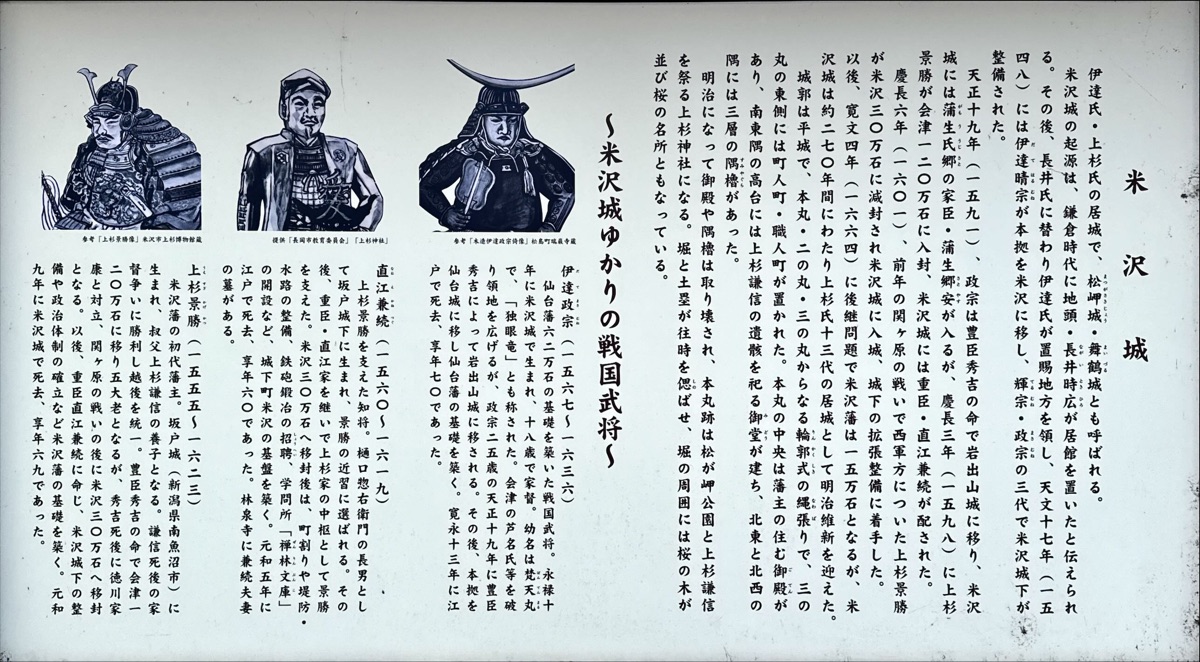 米沢城
伊達氏・上杉氏の居城で、松岬城・舞鶴城とも呼ばれる。
米沢城の起源は、鎌倉時代に地頭・長井時広が居館を置いたと伝えられ
る。その後、長井氏に替わり伊達氏が置賜地方を領し、天文十七年（一五
四八）には伊達晴宗が本拠を米沢に移し、輝宗・政宗の三代で米沢城下が
整備された。
天正十九年（一五九一）、政宗は豊臣秀吉の命で岩出山城に移り、米沢
城には蒲生氏郷の家臣・蒲生郷安が入るが、慶長三年（一五九八）に上杉
景勝が会津一二〇万石に入封、米沢城には重臣・直江兼続が配された。
慶長六年（一六〇一）、前年の関ヶ原の戦いで西軍方についた上杉景勝
が米沢三〇万石に減封され米沢城に入城、城下の拡張整備に着手した。
以後、寛文四年（一六六四）に後継問題で米沢藩は一五万石となるが、米
沢城は約二七〇年間にわたり上杉氏十三代の居城として明治維新を迎えた。
城郭は平城で、本丸・二の丸・三の丸からなる輪郭式の縄張りで、三の
丸の東側には町人町・職人町が置かれた。本丸の中央は藩主の住む御殿が
あり、南東隅の高台には上杉謙信の遺骸を祀る御堂が建ち、北東と北西の
隅には三層の隅櫓があった。
明治になって御殿や隅櫓は取り壊され、本丸跡は松が岬公園と上杉謙信
を祭る上杉神社になる。堀と土塁が往時を偲ばせ、堀の周囲には桜の木が
並び桜の名所ともなっている。
～米沢城ゆかりの戦国武将～
参考「木造伊達政宗倚像」松島町瑞巌寺蔵
伊達政宗（一五六七～一六三六）
仙台藩六二万石の基礎を築いた戦国武将。永禄十
年に米沢城で生まれ、十八歳で家督。幼名は梵天丸
で、「独眼竜」とも称された。会津の芦名氏等を破
り領地を広げるが、政宗二五歳の天正十九年に豊臣
秀吉によって岩出山城に移される。その後、本拠を
仙台城に移し仙台藩の基礎を築く。寛永十三年に江
戸で死去、享年七〇であった。
提供「長岡市教育委員会」「上杉神社」
直江兼続（一五六〇～一六一九）
上杉景勝を支えた知将。樋口惣右衛門の長男とし
て坂戸城下に生まれ、景勝の近習に選ばれる。その
後、重臣・直江家を継いで上杉家の中枢として景勝
を支えた。米沢三〇万石へ移封後は、町割りや堤防・
水路の整備、鉄砲鍛冶の招聘、学問所「禅林文庫」
の開設など、城下町米沢の基盤を築く。元和五年に
江戸で死去、享年六〇であった。林泉寺に兼続夫妻
の墓がある。
参考「上杉景勝像」米沢市上杉博物館蔵
上杉景勝（一五五五～一六二三）
米沢藩の初代藩主。坂戸城（新潟県南魚沼市）に
生まれ、叔父上杉謙信の養子となる。謙信死後の家
督争いに勝利し越後を統一。豊臣秀吉の命で会津一
二〇万石に移り五大老となるが、秀吉死後に徳川家
康と対立、関ヶ原の戦いの後に米沢三〇万石へ移封
となる。以後、重臣直江兼続に命じ、米沢城下の整
備や政治体制の確立など米沢藩の基礎を築く。元和
九年に米沢城で死去、享年六九であった。